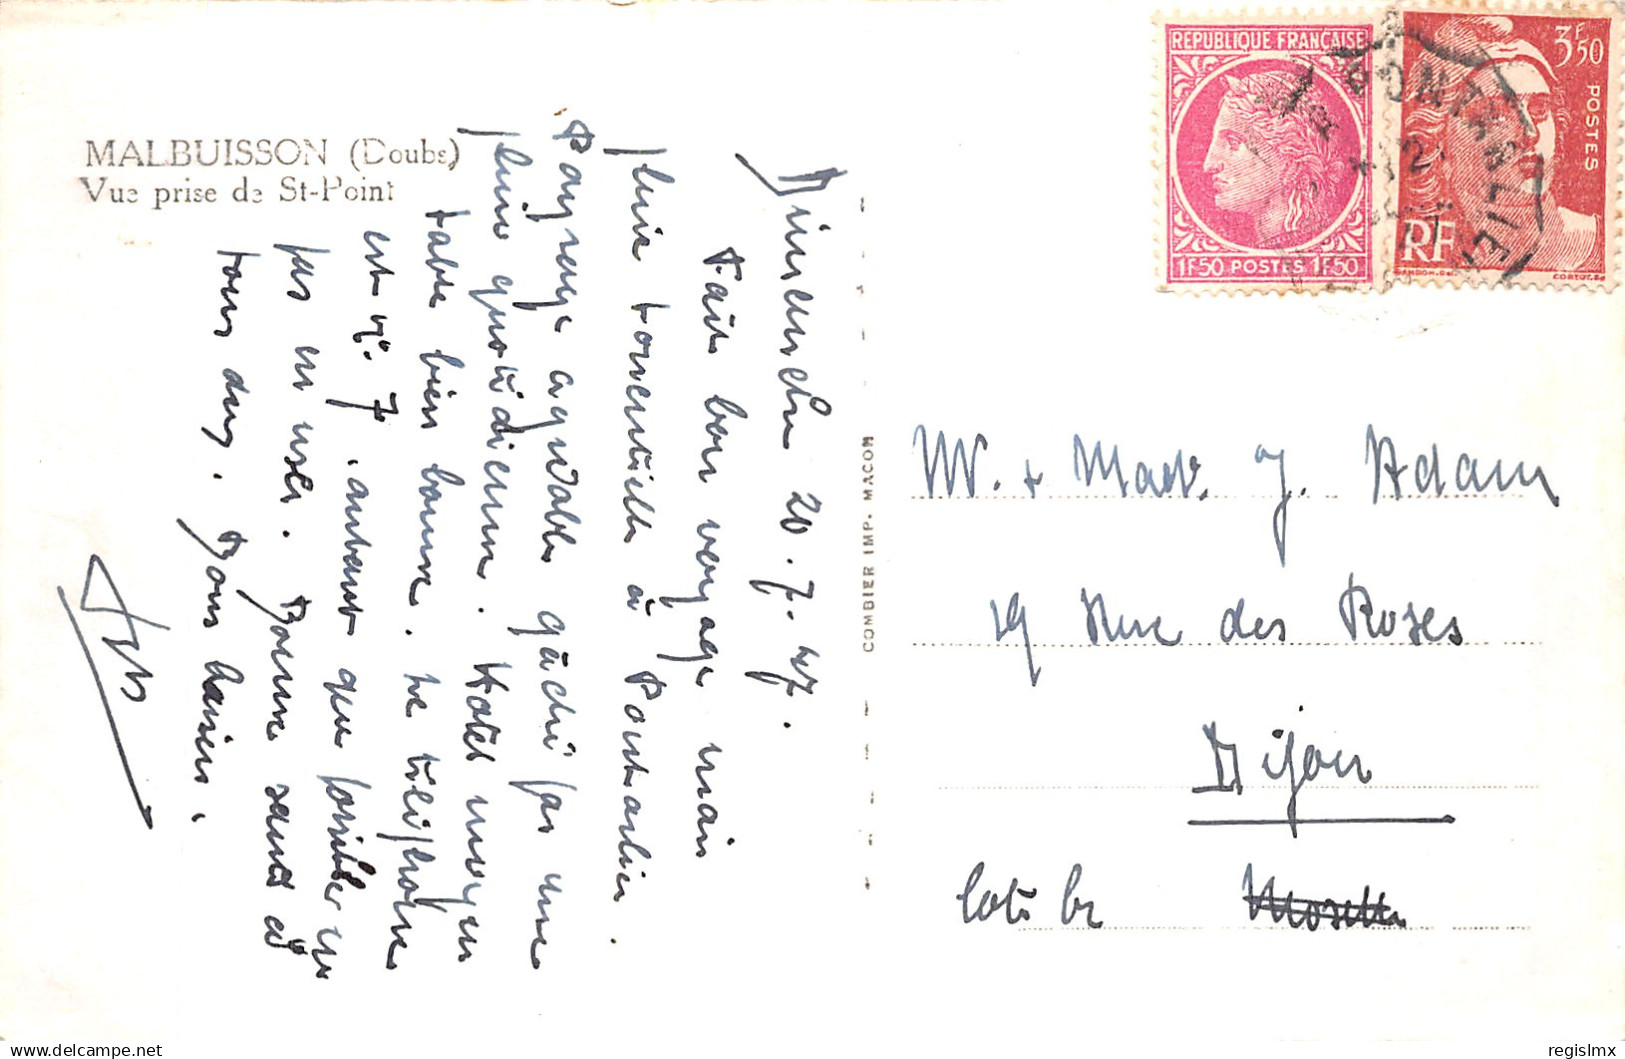 MALBUISSON (Doubs)
Vue prise de St-Point
Dimanche 20.7.47.
Fait bon voyage mais
pluie torrentielle à Pontarlier.
Paysage agréable gâché par une
pluie quotidienne. Hotel moyen
table bien bonne. Le téléphone
est n°. 7. autant que possible ne
pas en user. Bonne santé à
tous deux. Bons baisers.
COMBIER IMP. MACON
REPUBLIQUE FRANÇAISE
1F50 POSTES 1F50
3F50
POSTES
RF
GANDON.
CORTOT.
PONTARLIER
M. + Mad. J. Adam
19 Rue des Roses
Dijon
Cote d'or Moselle
regislmx